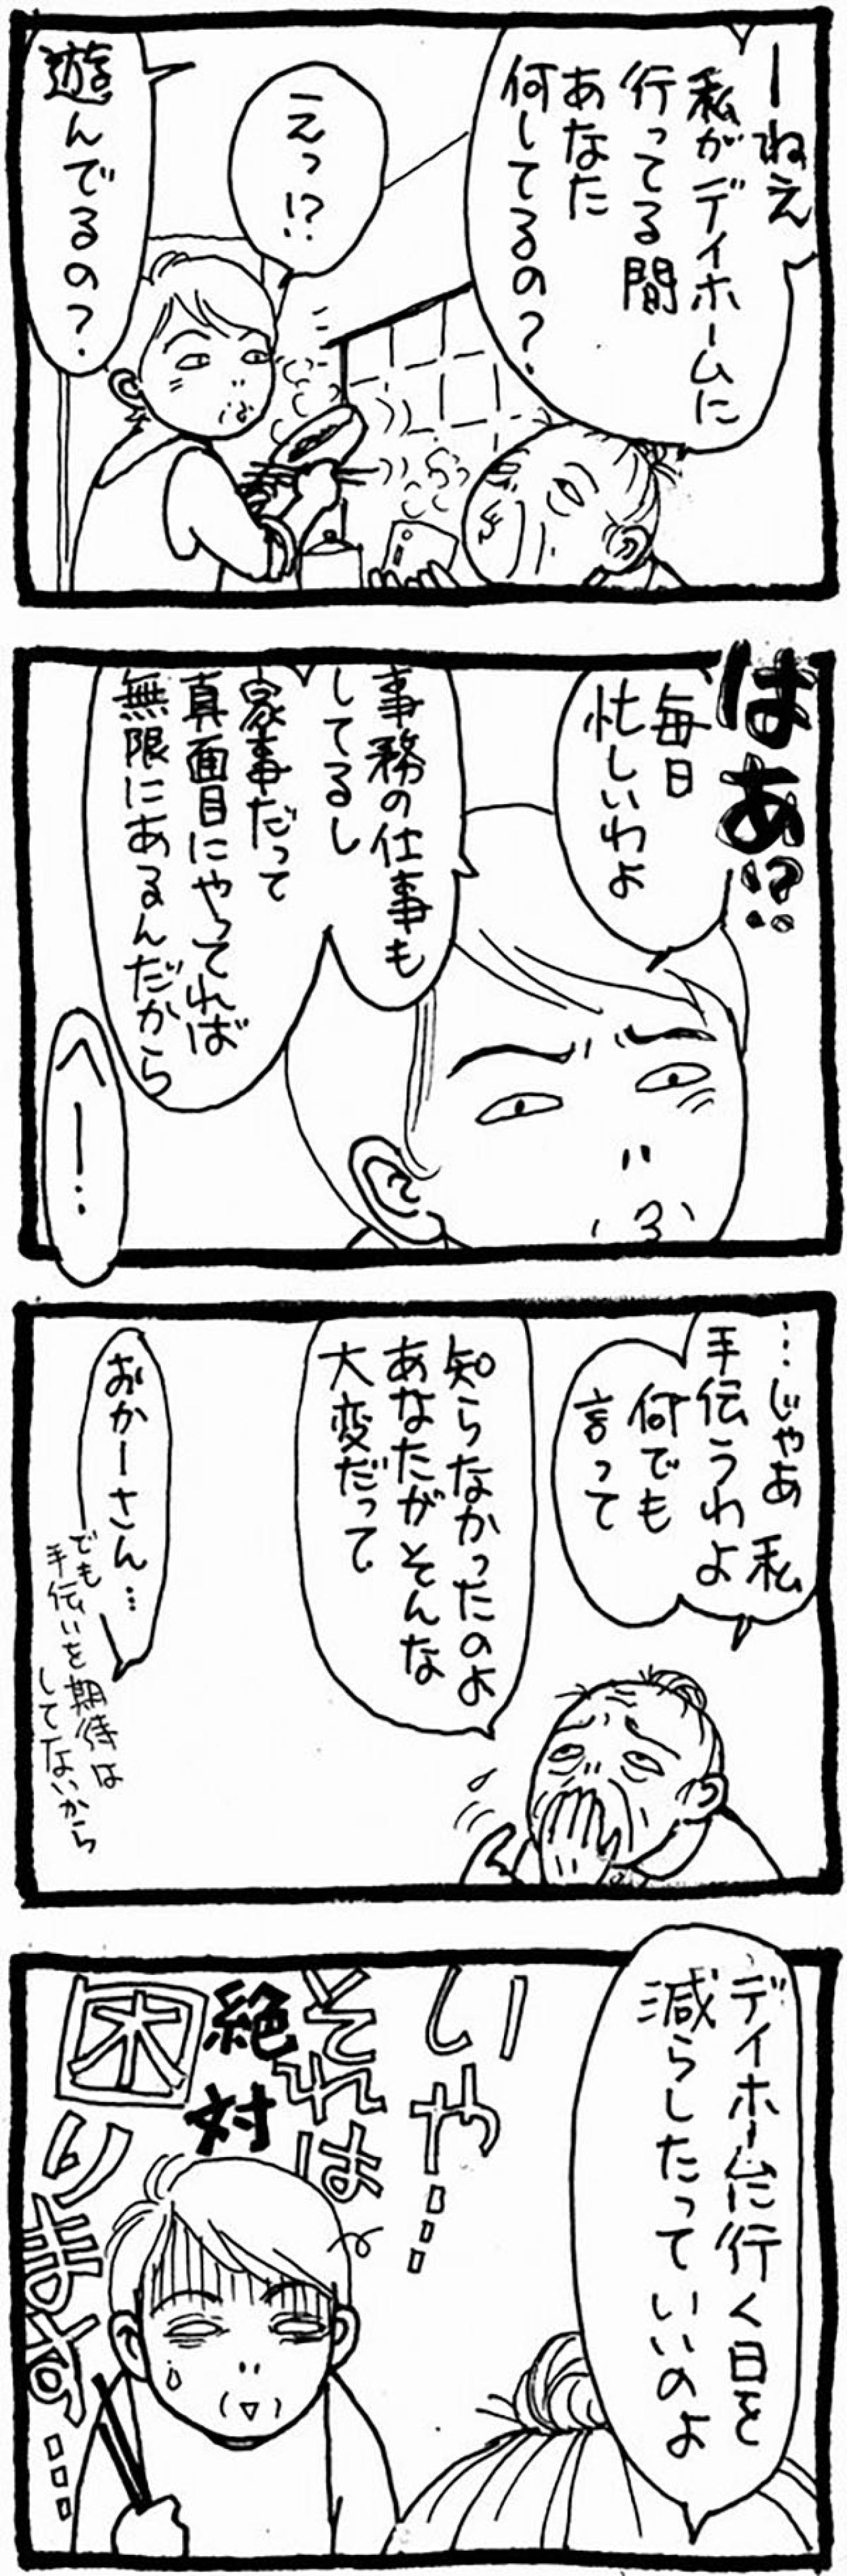 ーねえ
私がデイホームに
行ってる間
あなた
何してるの?
えっ!?
遊んでるの?
はあ!?
毎日
忙しいわよ
事務の仕事も
してるし
家事だって
真面目にやってれば
無限にあるんだから
へー…
…じゃあ 私
手伝うわよ
何でも
言って
知らなかったのよ
あなたがそんな
大変だって
おかーさん…
でも
手伝いを期待は
してないから
デイホームに行く日を
減らしたっていいのよ
いや…
それは
絶対
困ります…